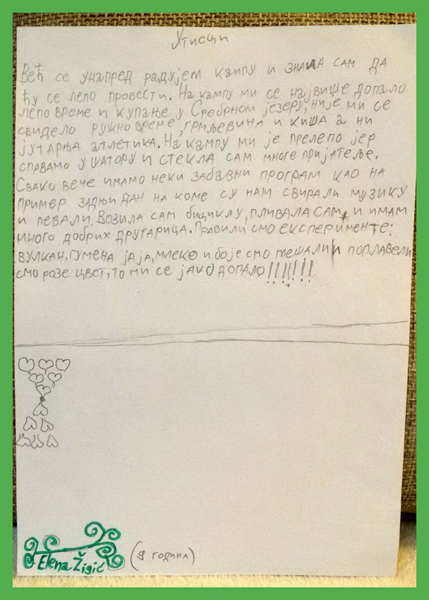 Утисци
Већ се унапред радујем кампу и знала сам да
ћу се лепо провести. На кампу ми се највише допало
лепо време и купање у Сребрном језеру, није ми се
свидело ружно време, грмљевина и киша а ни
јутарња атлетика. На кампу ми је прелепо јер
спавамо у шатору и стекла сам многе пријатеље,
Свако вече имамо неки забавни програм као на
пример задњи дан на коме су нам свирали музику
и певали. Возила сам бициклу, пливала сам, и имам
много добрих другарица. Правили смо експерименте:
вулкан, гумена јаја, млеко и боје смо мешали и поплавели
смо розе цвет, то ми се јако допало!!!!!!!
Elena Žigić
(9 година)